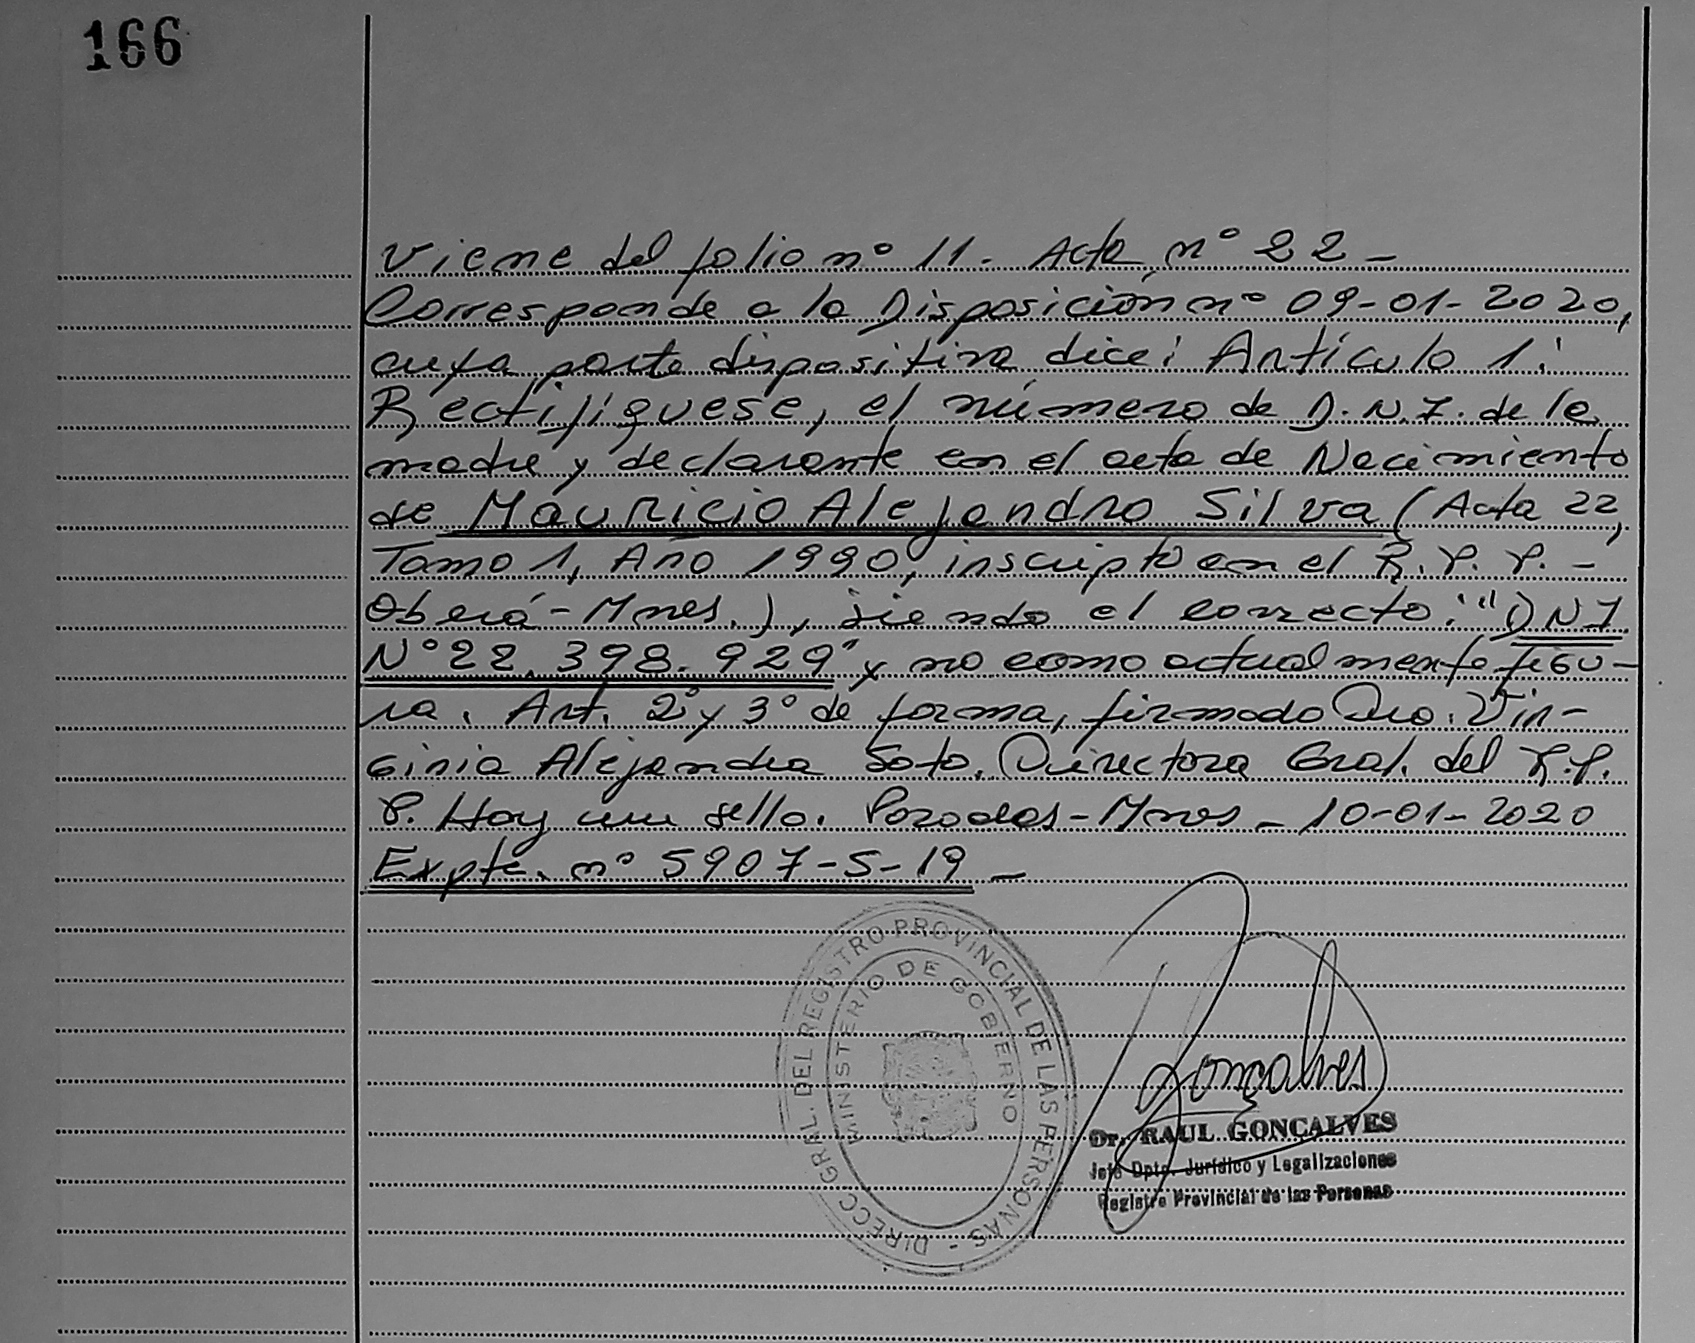 166
Viene del folio nº 11. Acta nº 22 -
Corresponde a la Disposición nº 09-01-2020,
cuya parte dispositiva dice: Artículo 1:
Rectifíquese, el número de D.N.I. de la
madre y declarante en el acta de Nacimiento
de Mauricio Alejandro Silva (Acta 22,
Tomo 1, Año 1990, inscripto en el R.P.P. -
Oberá - Mnes.), siendo el correcto: "DNI
Nº 22.398.929" y no como actualmente figu-
ra. Art. 2º y 3º de forma, firmado Dra. Vir-
ginia Alejandra Soto. Directora Gral. del R.P.
P. Hay un sello. Posadas - Mnes - 10-01-2020
Expte. nº 5907-S-19 -
DIRECC. GRAL. DEL REGISTRO PROVINCIAL DE LAS PERSONAS -
MINISTERIO DE GOBIERNO
Gonçalves
Dr. RAUL GONÇALVES
Jefe Dpto. Jurídico y Legalizaciones
Registro Provincial de las Personas